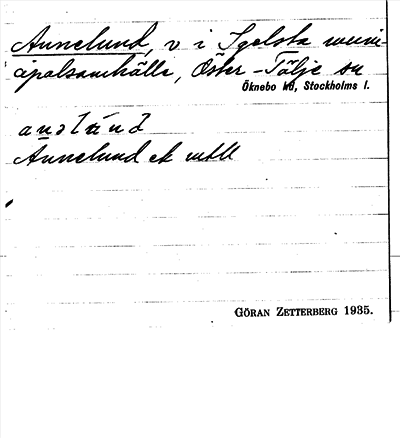 Annelund, v i Igelsta muni-
cipalsamhälle, Öster-Tälje sn
Öknebo hd, Stockholms l.
Annelund ek
GÖRAN ZETTERBERG 1935.